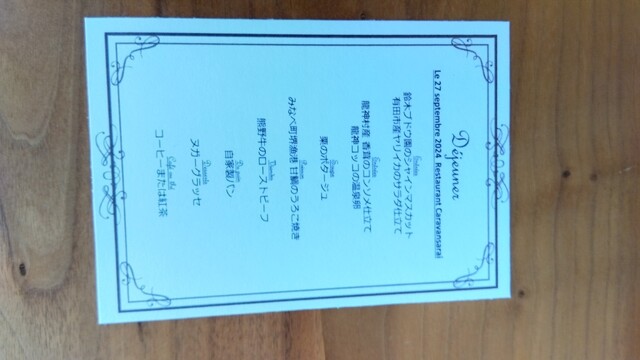 Déjeuner
Le 27 septembre 2024 Restaurant Caravansarai
鈴木ブドウ園のシャインマスカット
有田市産ヤリイカのサラダ仕立て
龍神村産 香茸のコンソメ仕立て
龍神コッコの温泉卵
Soupe
栗のポタージュ
Poisson
みなべ町堺漁港 甘鯛のうろこ焼き
Viande
熊野牛のローストビーフ
自家製パン
Desserts
ヌガーグラッセ
Café ou thé
コーヒーまたは紅茶